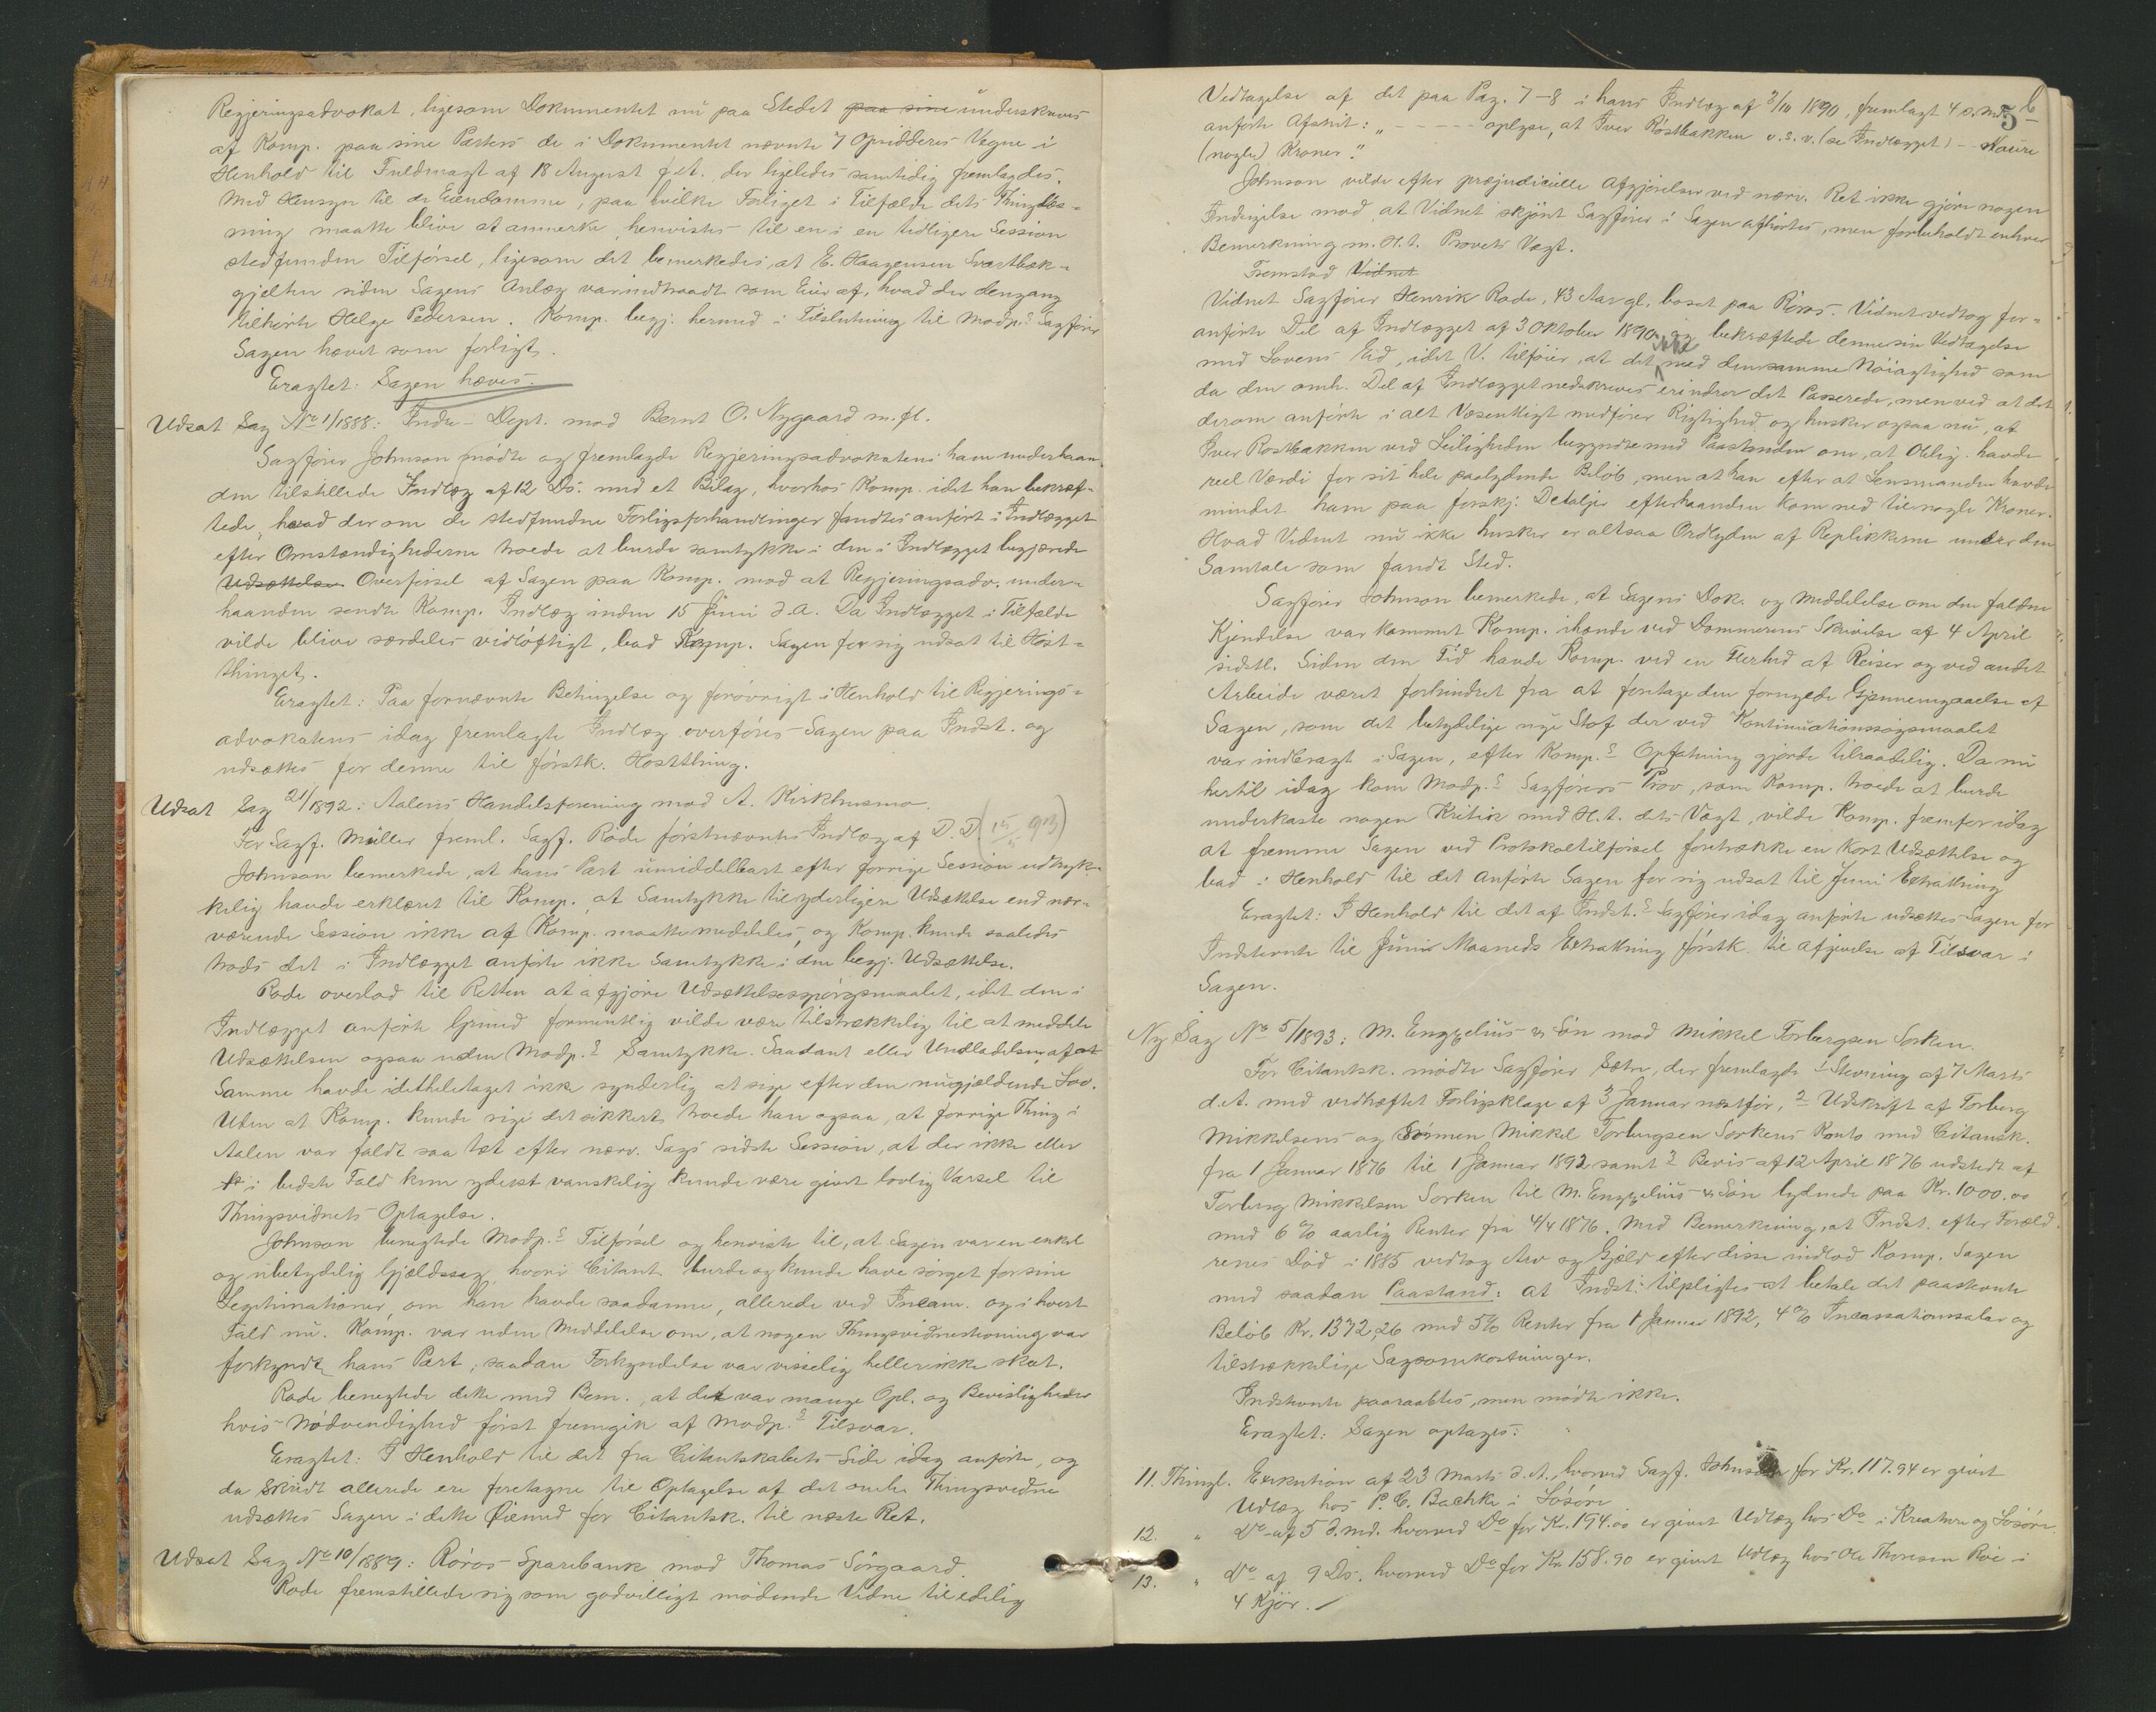 Regjeringsadvokat, ligesom Dokumentet nu paa Stedet paa sine underskreves
af Komp. paa sine Parters de i Dokumentet nævnte 7 Opsidderes Vegne i
Henhold til Fuldmagt af 18 August f.A. der ligeledes samtidig fremlagdes.
Med Hensyn til de Eiendomme, paa hvilke Forliget i Tilfælde dets Thinglæs-
ning maatte blive at anmerke, henvistes til en i en tidligere Session
stedfunden Tilførsel, ligesom det bemerkedes, at E. Haagensen Svartbæk-
gjelten siden Sagens Anlæg var indtraadt som Eier af, hvad der dengang
tilhørte Helge Pedersen. Komp. begj. hermed i Tilslutning til Modp.s Sagfører
Sagen hævet som forligt.
Eragtet: Sagen hæves.
Udsat Sag No 1/1888: Indre-Dept. mod Bernt O. Nygaard m. fl.
Sagfører Johnson mødte og fremlagde Regjeringsadvokatens ham underhaan-
den tilstillede Indlæg af 12 Ds. med et Bilag, hvorhos Komp. idet han bekræf-
tede, hvad der om de stedfundne Forligsforhandlinger fandtes anført i Indlægget
efter Omstændighederne troede at burde samtykke i den i Indlægget begjærede
Udsættelse Overførsel af Sagen paa Komp. mod at Regjeringsadv. under-
haanden sendte Komp. Indlæg inden 15 Juni d.A. Da Indlægget i Tilfælde
vilde blive særdeles vidløftigt, bad Komp. Sagen for sig udsat til Høst-
thinget.
Eragtet: Paa fornævnte Betingelse og forøvrigt i Henhold til Regjerings-
advokatens idag fremlagte Indlæg overføres Sagen paa Indst. og
udsættes for denne til førstk. Høstthing.
Udsat Sag 21/1892: Aalens Handelsforening mod A. Kirkhusmo.
For Sagf. Müller freml. Sagf. Rode førstnævntes Indlæg af D.D. (15/5 93)
Johnson bemerkede, at hans Part umiddelbart efter forrige Session udtryk-
kelig havde erklæret til Komp. at Samtykke til yderligere Udsættelse end nær-
værende Session ikke af Komp. maatte meddeles, og Komp. kunde saaledes
trods det i Indlægget anførte ikke Samtykke i den begj. Udsættelse.
Rode overlod til Retten at afgjøre Udsættelsesspørgsmaalet, idet den i
Indlægget anførte Grund formentlig vilde være tilstrækkelig til at meddele
Udsættelsen ogsaa uden Modp.s Samtykke. Saadant eller Undladelsen af at
Samme havde idetheletaget ikke synderlig at sige efter den nugjældende Lov.
Uden at Komp. kunde sige det sikkert, troede han ogsaa, at forrige Thing i
Aalen var faldt saa tæt efter nærv. Sags sidste Session, at der ikke eller
i bedste Fald kun yderst vanskelig kunde være givet lovlig Varsel til
Thingsvidnets Optagelse.
Johnson benegtede Modp.s Tilførsel og henviste til, at Sagen var en enkel
og ubetydelig Gjældssag, hvori Citant. burde og kunde have sørget for sine
Legitimationer, om han havde saadanne, allerede ved Incam. og i hvert
Fald nu. Komp. var uden Meddelelse om, at nogen Thingsvidnestevning var
forkyndt hans Part, saadan Forkyndelse var visselig heller ikke skeet.
Rode benegtede dette med Bem., at det var mange Opl. og Bevisligheder
hvis Nødvendighed først fremgik af Modp.s Tilsvar.
Eragtet: I Henhold til det fra Citantskabets Side idag anførte, og
da Skridt allerede ere foretagne til Optagelse af det omh. Thingsvidne
udsættes Sagen i dette Øiemed for Citantsk. til næste Ret.
Udsat Sag No 10/1889: Røros Sparebank mod Thomas Sørgaard.
Rode fremstillede sig som godvilligt mødende Vidne til edelig
5 b
Vedtagelse af det paa Pag. 7-8 i hans Indlæg af 3/10 1890, fremlagt 4 s. Md.
anførte Afsnit: "- - - - - oplyse, at Iver Rostbakken o.s.v. (se Indlægget) - - Noure
(nogle) Kroner."
Johnson vilde efter præjudicielle Afgjørelser ved nærv. Ret ikke gjøre nogen
Indsigelse mod at Vidnet skjønt Sagfører i Sagen afhørtes, men forbeholdt enhver
Bemerkning m. H. t. Provets Vægt.
Fremstod Vidnet
Vidnet Sagfører Henrik Rode, 43 Aar gl., bosat paa Røros. Vidnet vedtog for-
anførte Del af Indlægget af 3 Oktober 1890, og bekræftede denne sin Vedtagelse
med Lovens Eid, idet V. tilføier, at det ikke med den samme Nøiagtighed som
da den omh. Del af Indlægget nedskreves erindrer det Passerede, men ved at det
derom anførte i alt Væsentligt medfører Rigtighed, og husker ogsaa nu, at
Iver Rostbakken ved Leiligheden begyndte med Paastanden om, at Oblig. havde
reel Værdi for sit hele paalydende Beløb, men at han efter at Lensmanden havde
mindet ham paa forskj. Detaljer efterhaanden kom ned til nogle Kroner.
Hvad Vidnet nu ikke husker er altsaa Ordlyden af Replikkerne under den
Samtale som fandt Sted.
Sagfører Johnson bemerkede, at Sagens Dok. og Meddelelse om den faldne
Kjendelse var kommet Komp. ihænde ved Dommerens Skrivelse af 4 April
sidstl. Siden den Tid havde Komp. ved en Flerhed af Reiser og ved andet
Arbeide været forhindret fra at foretage den fornyede Gjennemgaaelse af
Sagen, som det betydelige nye Stof der ved Kontinuationssøgsmaalet
var indbragt i Sagen, efter Komp.s Opfatning gjorde tilraadelig. Da nu
hertil idag kom Modp.s Sagførers Prov, som Komp. troede at burde
underkaste nogen Kritik med H. t. dets Vægt, vilde Komp. fremfor idag
at fremme Sagen ved Protokoltilførsel foretrække en kort Udsættelse og
bad i Henhold til det Anførte Sagen for sig udsat til Juni Extrathing
Eragtet: I Henhold til det af Indst.s Sagfører idag anførte udsættes Sagen for
Indstevnte til Juni Maaneds Extrathing førstk. til Afgivelse af Tilsvar i
Sagen.
Ny Sag No 5/1893: M. Engzelius & Søn mod Mikkel Torbergsen Sorken.
For Citantsk. mødte Sagfører Sætre, der fremlagde 1 Stevning af 7 Marts
d.A. med vedhæftet Forligsklage af 3 Januar næstfør, 2 Udskrift af Torberg
Mikkelsens og Sønnen Mikkel Torbergsen Sorkens Konto med Citantsk.
fra 1 Januar 1876 til 1 Januar 1892 samt 3 Bevis af 12 April 1876 udstedt af
Torberg Mikkelsen Sorken til M. Engzelius & Søn lydende paa Kr. 1000.00
med 6 % aarlig Renter fra 4/4 1876. Med Bemerkning, at Indst. efter Foræld-
renes Død i 1885 vedtog Arv og Gjæld efter disse indlod Komp. Sagen
med saadan Paastand: at Indst. tilpligtes at betale det paastevnte
Beløb Kr. 1372,26 med 5% Renter fra 1 Januar 1892, 4 % Incassationssalær og
tilstrækkelige Sagsomkostninger.
Indstevnte paaraabtes, men mødte ikke.
Eragtet: Sagen optages.
11. Thingl. Exekution af 23 Marts d.A., hvorved Sagf. Johnson for Kr. 117.94 er givet
Udlæg hos P. C. Bachke i Løsøre
12. " Do af 5 d.Md. hvorved Do for Kr. 194.00 er givet Udlæg hos Do i Kreature og Løsøre.
13. " Do af 9 Ds. hvorved Do for Kr. 158.90 er givet Udlæg hos Ole Thoresen Røe i
4 Kjør.